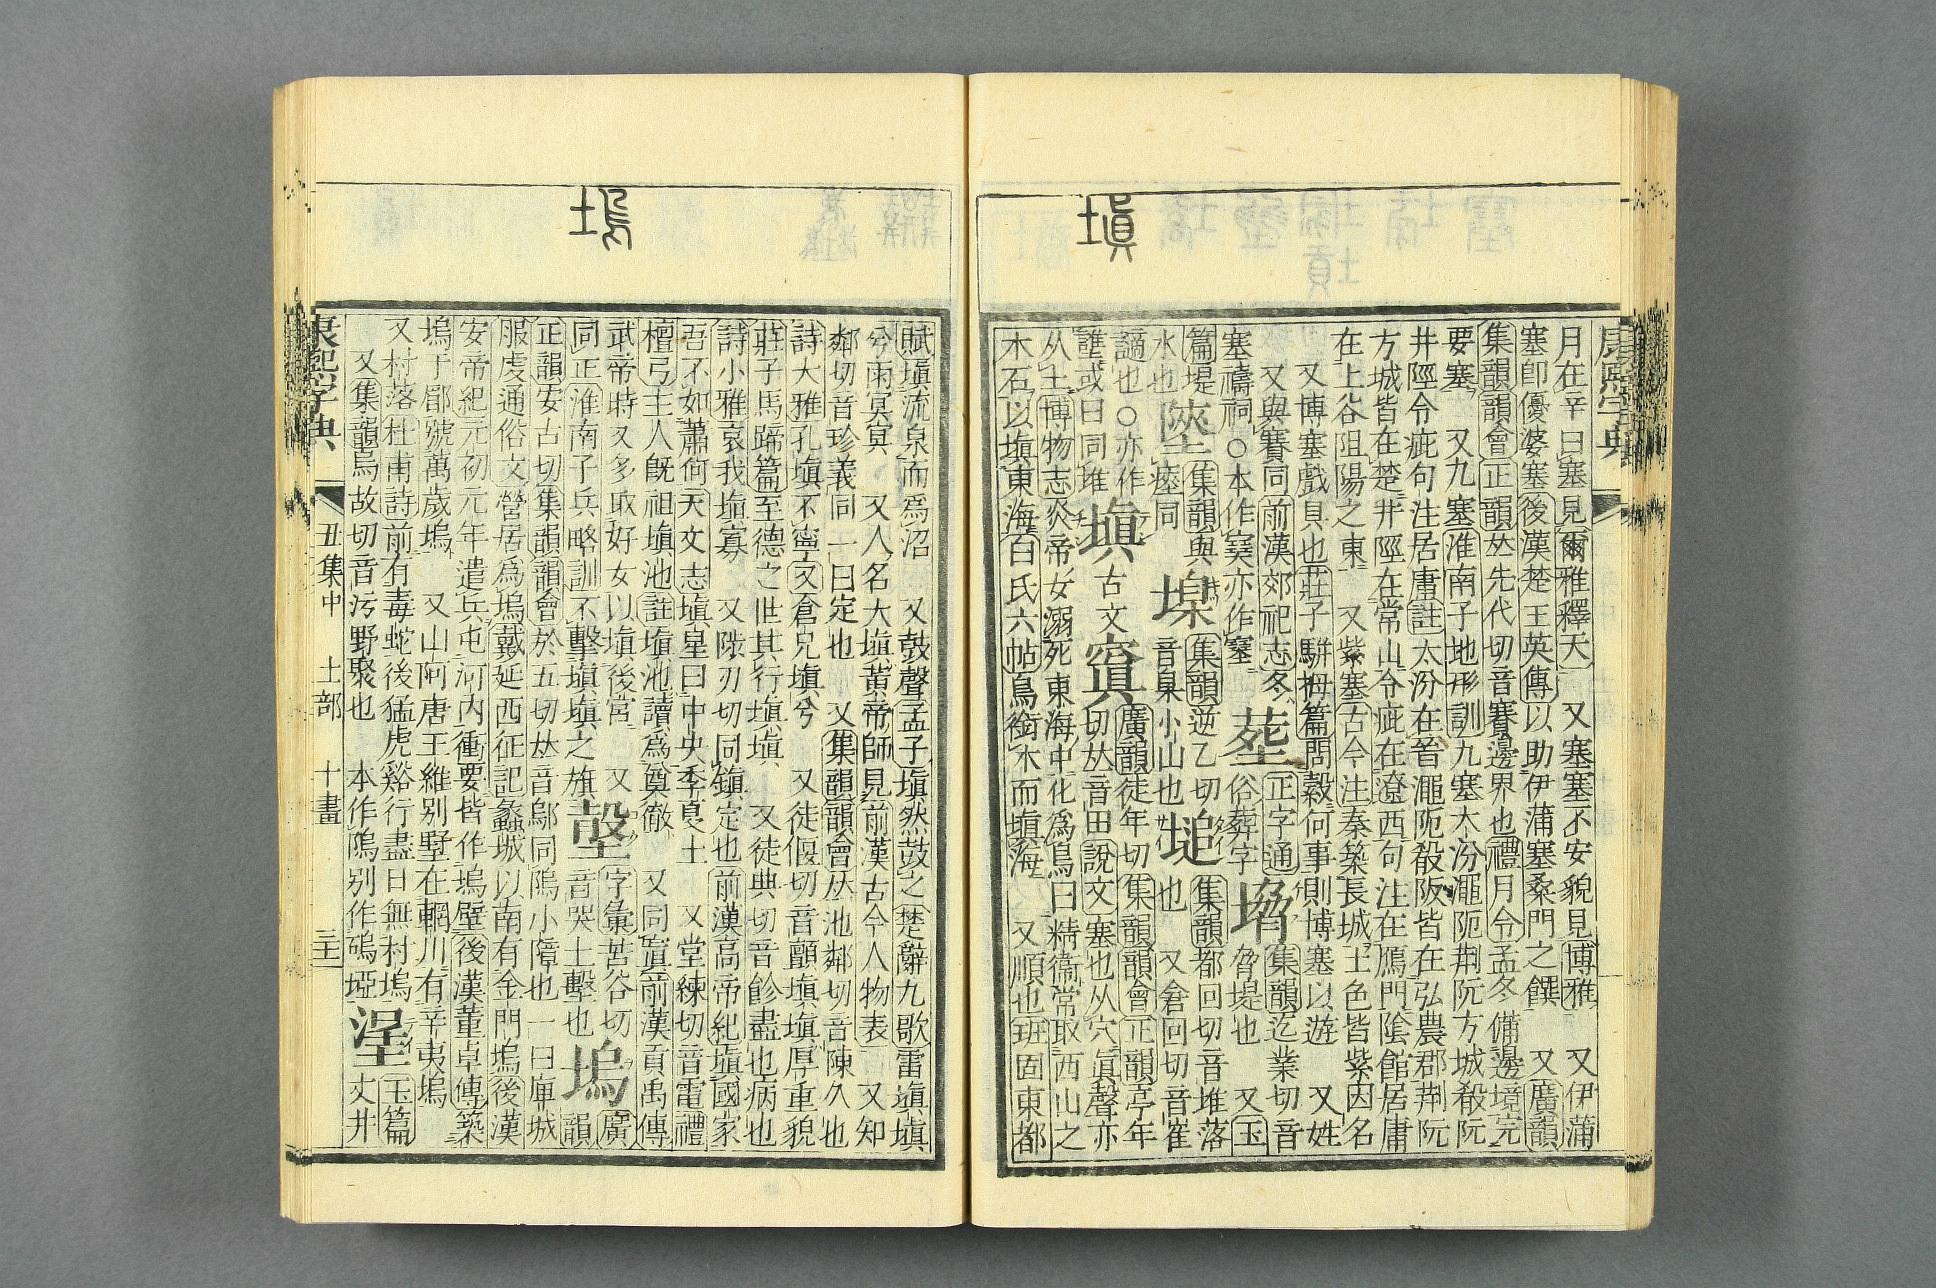 塡
康熙字典
月在辛曰塞見爾雅釋天 又塞塞不安貌見博雅 又伊蒲
塞卽優婆塞後漢楚王英傳以助伊蒲塞桑門之饌 又廣韻
集韻韻會正韻𠀤先代切音賽邊界也禮月令孟冬備邊境完
要塞 又九塞淮南子地形訓九塞太汾澠阨荆阮方城殽阪
井陘令疵句注居庸註太汾在晉澠阨殽阪皆在弘農郡荆阮
方城皆在楚井陘在常山令疵在遼西句注在鴈門隂館居庸
在上谷阻陽之東 又紫塞古今注秦築長城土色皆紫因名
又博塞戲具也莊子騈拇篇問穀何事則博塞以遊 又姓
又與賽同前漢郊祀志冬
塞禱祠○本作𡫳亦作
正字通
俗葬字
集韻迄業切音
脅堤也 又玉
篇堤
水也
集韻與
瘞同
集韻逆乙切
音臬小山也
塠
集韻都回切音堆落
也 又倉回切音崔
謫也○亦作
䜅或曰同堆
塡
古文
窴
廣韻徒年切集韻韻會正韻亭年
切𠀤音田說文塞也从穴眞聲亦
从土博物志炎帝女溺死東海中化爲鳥曰精衞常取西山之
木石以塡東海白氏六帖鳥銜木而塡海 又順也班固東都
塢
賦塡流泉而爲沼 又鼓聲孟子塡然鼓之楚辭九歌雷塡塡
兮雨冥冥 又人名大塡黃帝師見前漢古今人物表 又知
鄰切音珍義同一曰定也 又集韻韻會𠀤池鄰切音陳久也
詩大雅孔塡不寧又倉兄塡兮 又徒偃切音顫塡塡厚重貌
莊子馬蹄篇至德之世其行塡塡 又徒典切音飻盡也病也
詩小雅哀我塡寡 又陟刃切同鎭定也前漢高帝紀塡國家
吾不如蕭何天文志塡星曰中央季夏土 又堂練切音電禮
檀弓主人旣祖塡池註塡池讀爲奠徹 又同窴前漢貢禹傳
武帝時又多取好女以塡後宮 又
同正淮南子兵略訓不擊塡塡之旗
字彙苦谷切
音哭土擊也
塢
廣
韻
正韻安古切集韻韻會於五切𠀤音鄔同隖小障也一曰庳城
服虔通俗文營居爲塢戴延西征記蠡城以南有金門塢後漢
安帝紀元初元年遣兵屯河内衝要皆作塢壁後漢董卓傳築
塢于郿號萬歲塢 又山阿唐王維別墅在輞川有辛夷塢
又村落杜甫詩前有毒蛇後猛虎谿行盡日無村塢
又集韻烏故切音汚野聚也 本作隖別作䃖埡
玉篇
丈井
康熙字典 丑集中 土部 十畫